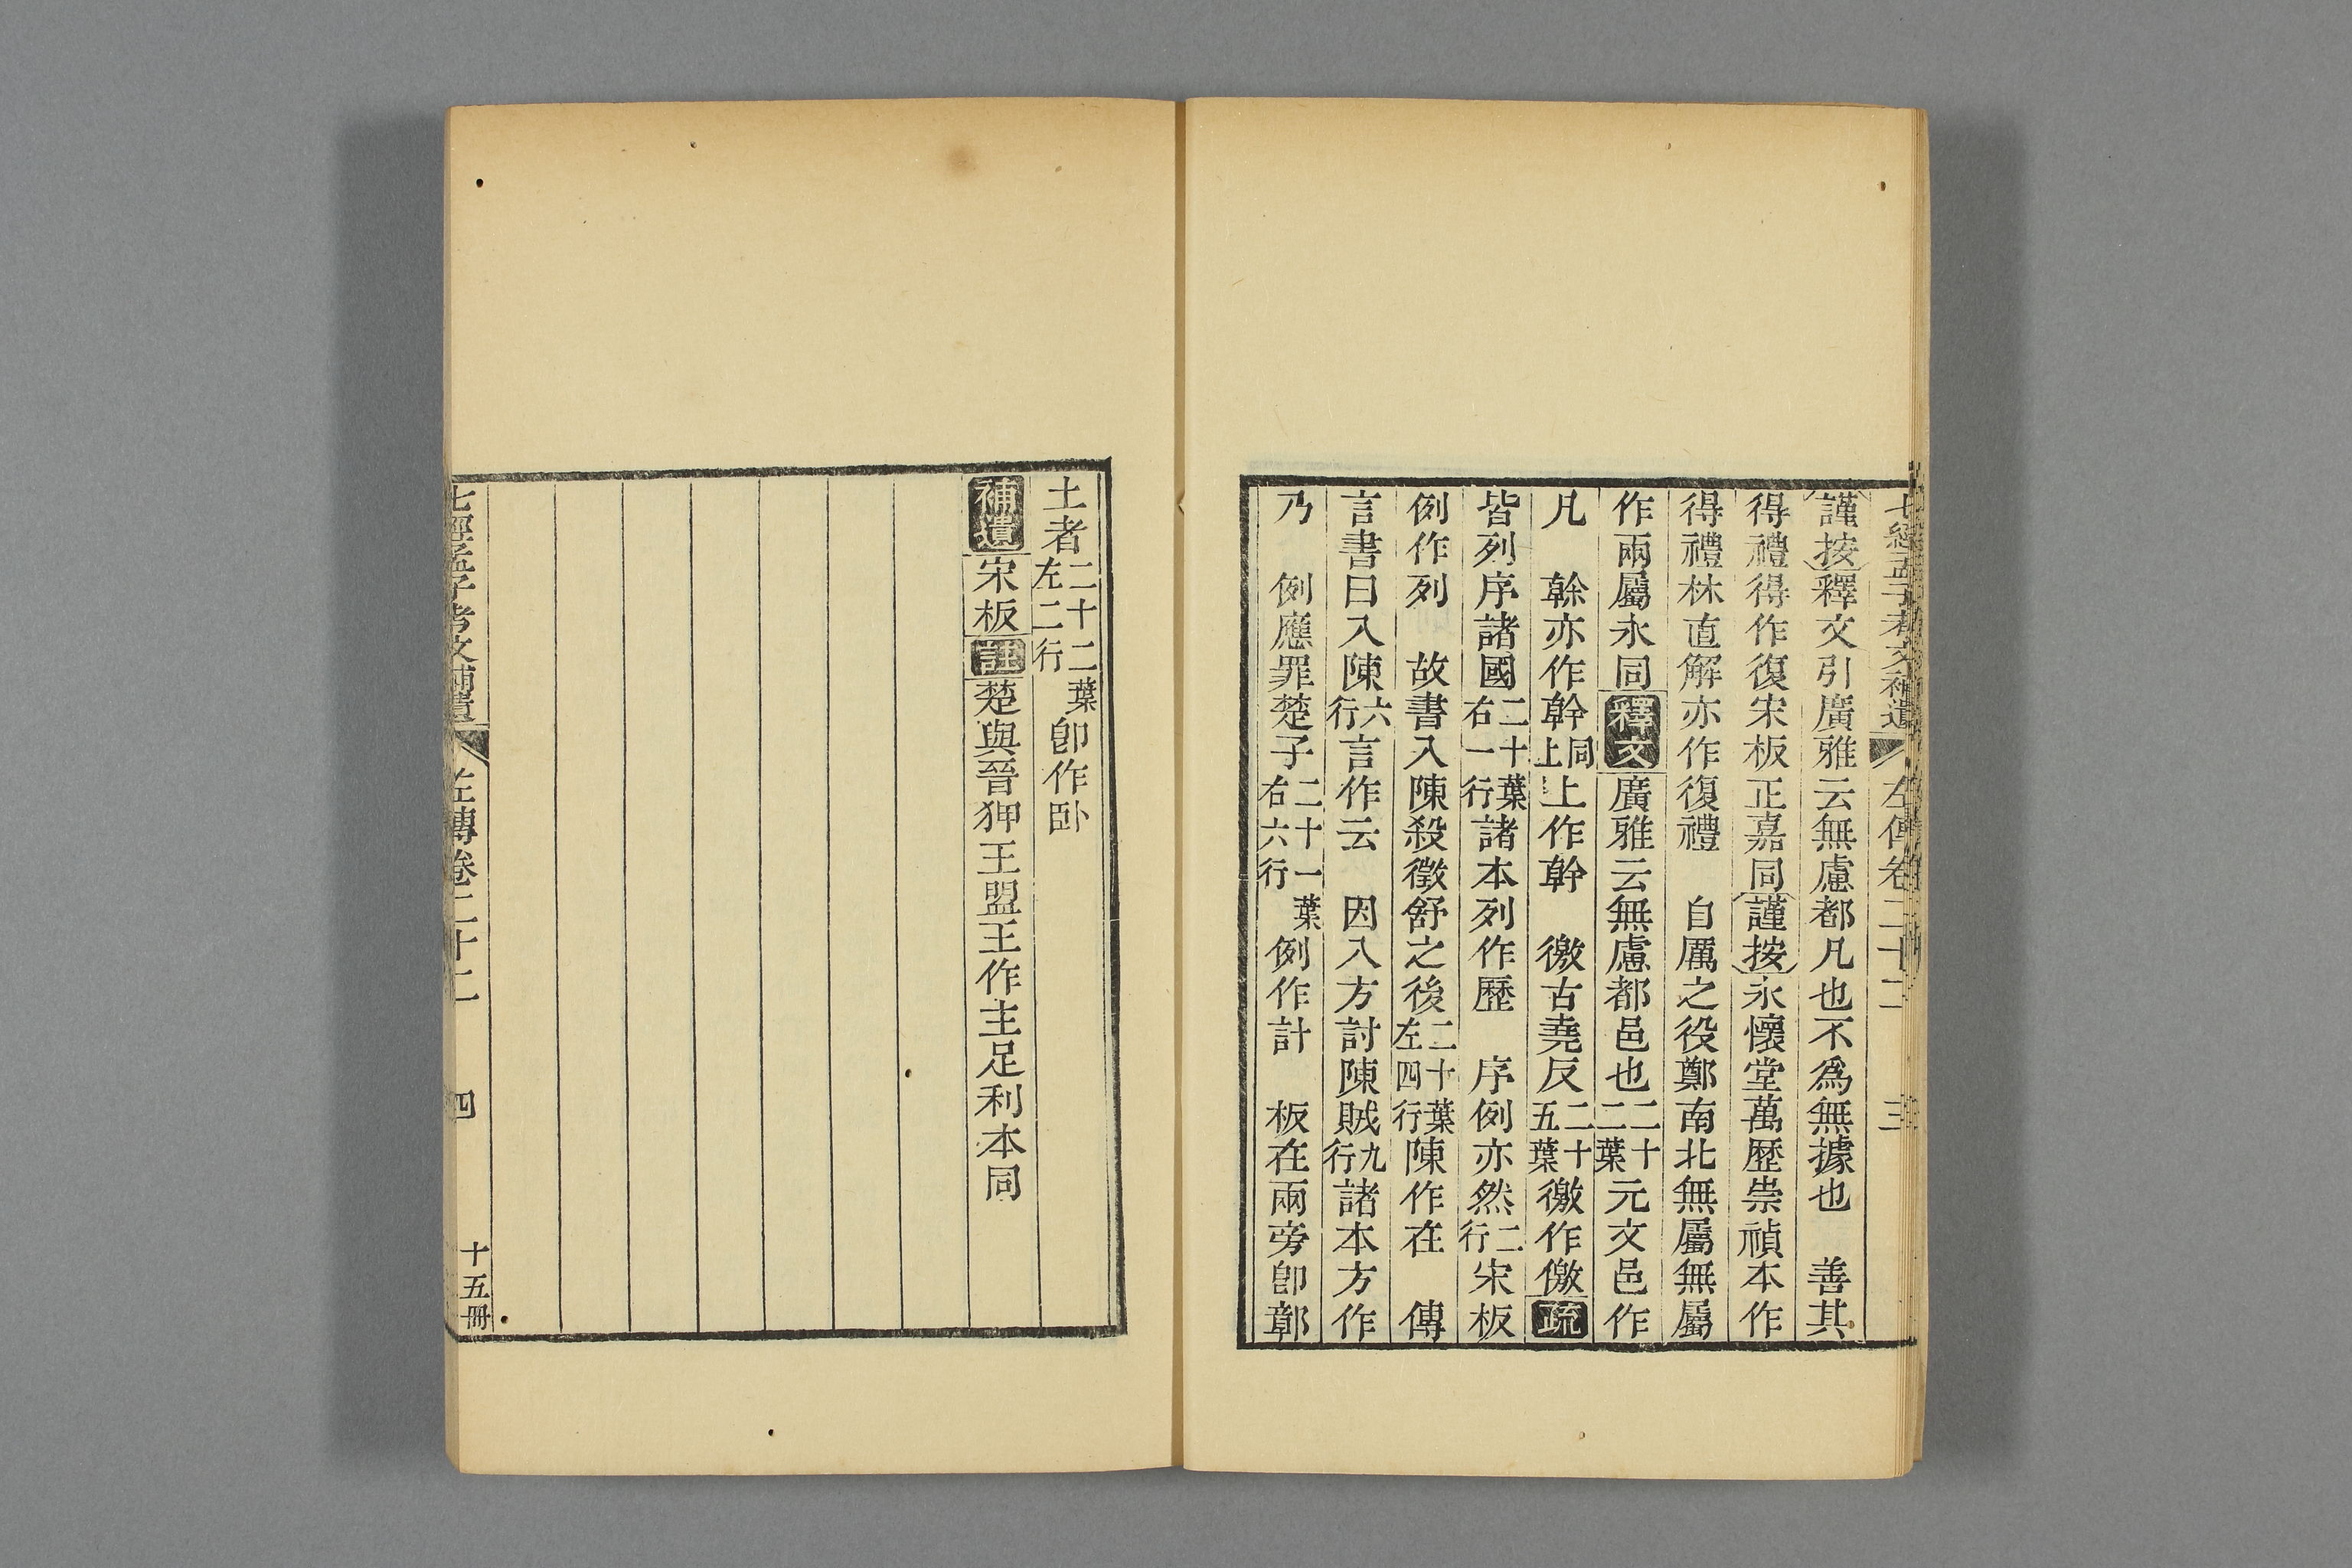 七經孟子考文補遺 左傳卷二十二 三
謹按釋文引廣雅云無慮都凡也不爲無據也 善其
得禮得作復宋板正嘉同謹按永懷堂萬歷崇禎本作
得禮林直解亦作復禮 自厲之役鄭南北無屬無屬
作兩屬永同釋文廣雅云無慮都邑也二十二葉元文邑作
凡 榦亦作幹同上上作幹 徼古堯反二十五葉徼作儌疏
皆列序諸國二十葉右一行諸本列作歷 序例亦然二行宋板
例作列 故書入陳殺徵舒之後二十葉左四行陳作在 傳
言書曰入陳六行言作云 因入方討陳賊九行諸本方作
乃 例應罪楚子二十一葉右六行例作計 板在兩旁卽鄣
土者二十二葉左二行卽作卧
補遺宋板註楚與晉狎王盟王作主足利本同
七經孟子考文補遺 左傳卷二十二 四 十五冊